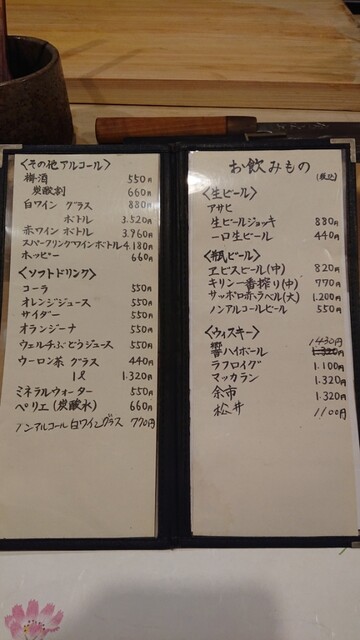 お飲みもの (税込)
<生ビール>
アサヒ
生ビールジョッキ 880円
一口生ビール 440円
<瓶ビール>
ヱビスビール(中) 820円
キリン一番搾り(中) 770円
サッポロ赤ラベル(大) 1.200円
ノンアルコールビール 550円
<ウィスキー>
1430円
響ハイボール 1.320円
ラフロイグ 1.100円
マッカラン 1.320円
余市 1.320円
松井 1100円
<その他アルコール>
梅酒 550円
炭酸割 660円
白ワイン グラス 880円
ボトル 3.520円
赤ワイン ボトル 3.960円
スパークリングワインボトル 4.180円
ホッピー 660円
<ソフトドリンク>
コーラ 550円
オレンジジュース 550円
サイダー 550円
オランジーナ 550円
ウェルチぶどうジュース 550円
ウーロン茶 グラス 440円
1ℓ 1.320円
ミネラルウォーター 550円
ペリエ(炭酸水) 660円
ノンアルコール白ワイングラス 770円